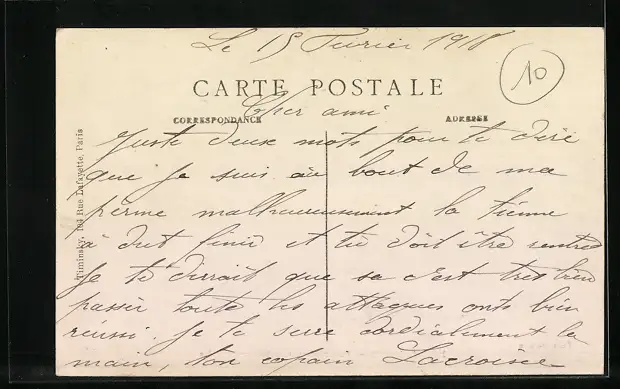 Le 15 Fevrier 1918
10
CARTE POSTALE
Cher ami
CORRESPONDANCE
ADRESSE
Juste deux mots pour te dire
que je suis au bout de ma
perme malheureusement la tienne
à dut finir et tu doit être rentré
Je te dirrait que sa c'est tres bien
passèr toute les attaques onts bien
réussi. Je te serre cordialement la
main, ton copain Lacroise
Timinsky, Rue Lafayette, Paris